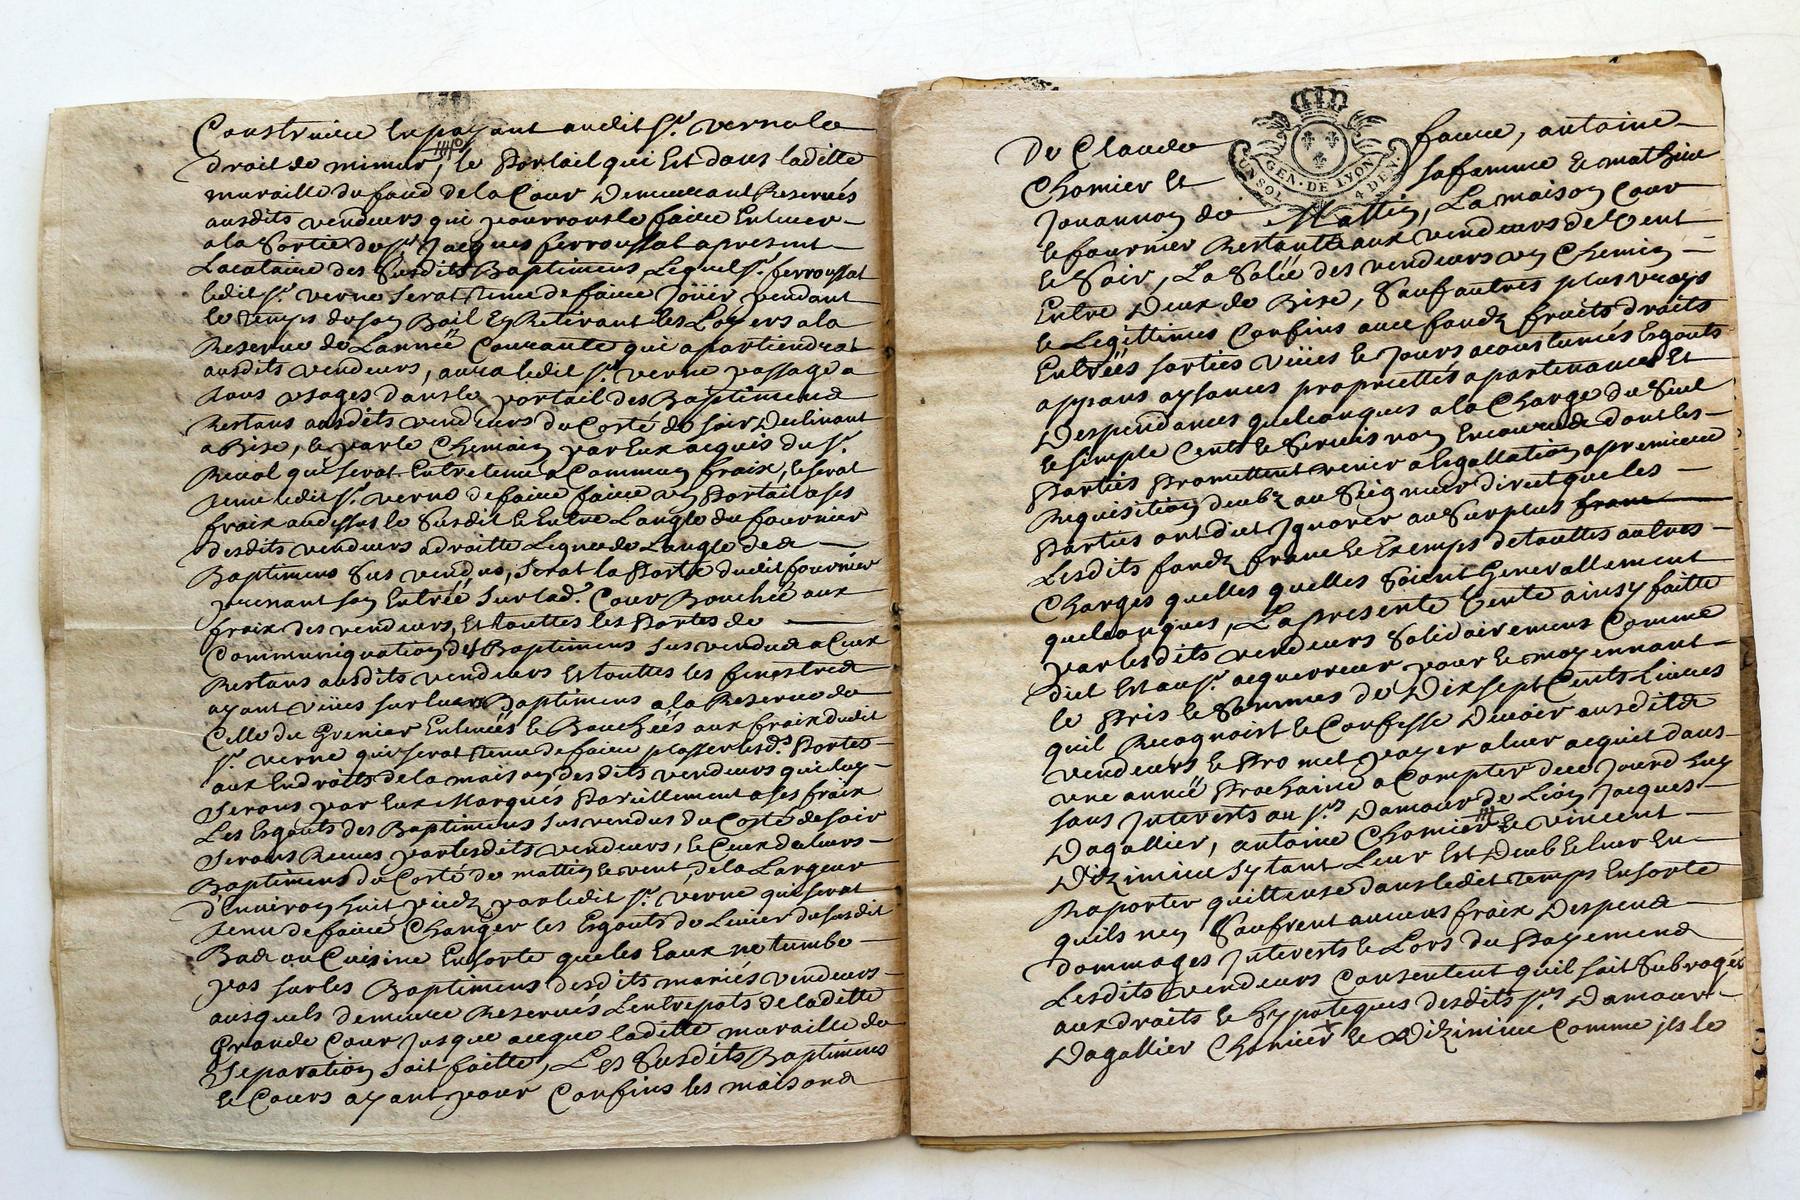 Construire En payant audit Sr. verne le
droit de mimur, le Portail qui Est dans laditte
muraille du fond de la Cour Demeurant Reservés
ausdits vendeurs qui pourront le faire Enlever
a la Sortie du sr Jacques ferroussat a present
Locataire des Susdits Baptimens, Lequel sr. ferroussat
ledit sr. verne serat tenu de faire Joüir pendant
le temps de son Bail En Retirant les Loyers a la
Reserve de Lannée Courante qui apartiendrat
ausdits vendeurs, aura ledit sr. verne passage a
tous usages dans le portail des Baptimens
Restans ausdits vendeurs du Costé de soir Declinant
a Bise, le par le Chemain par Eux acquis du sr.
Revol qui serat Entretenu a Commun fraix, le serat
tenu ledit sr. verne de faire faire un Portail a ses
fraix au dessus le Susdit le Entre Langle du fournier
desdits vendeurs a droitte Ligne de Langle de
Baptimens Sus vendus, serat la Porte dudit fournier
prenant son Entrée sur lad. Cour Bouchée aux
fraix des vendeurs, Et touttes les Portes de
Communiquation des Baptimens sus vendus a Ceux
Restans ausdits vendeurs Et touttes les fenestres
ayant vües sur leurs Baptimens a la Reserve de
Celle du Grenier Enlevées le Bouchées aux fraix dudit
sr. verne qui serat tenu de faire plasser lesds. Portes
aux Endroits de la maison desdits vendeurs qui luy
serons par Eux Marqués Pareillement a ses fraix
Les Esgouts des Baptimens sus vendus du Costé de soir
serons Receus par lesdits vendeurs, le Ceux de leurs
Baptimens du Costé de mattin le vent, de la Largeur
d'Environ huit piedz par ledit sr. verne qui serat
tenu de faire Changer les Esgouts de Levier du susdit
Bas ou Cuisine Ensorte que les Eaux ne tombe
pas sur les Baptimens desdits mariés vendeurs
ausquels demeure Reservés Lentrepots de laditte
Grande Cour jusque acque laditte muraille de
separation soit faitte, Les Susdits Baptimens
le Cours ayant pour Confins les maisons
De Claude faure, antoine
Chomier Et sa famme le mathieu
Jouannon de Mattin, La maison Cour
le fournier Restante aux vendeurs de Vent
le Soir, La Salée des vendeurs un Chemin
Entre Deux de Bise, Sauf autres plus vrays
le Legittimes Confins avec fondz fruits droits
Entrées sorties Vüies le Jours acoustumés Esgouts
aysances proprietés apartenances Et
Despendances quelconques a la Charge du Seul
le simple Cents le Servis non Encourus dont les
Parties Promettent venir a Esgallation a premiere
Requisition deubz au Seigneur direct que les
Parties ont dict Ignorer au Surplus franc
Lesdits fondz franc le Exemps de touttes autres
Charges quelles quelles Soient Generallement
quelconques, La presente Vente ainsy faitte
par lesdits vendeurs Solidairement Comme
dict Est au sr. acquerreur pour le moyennant
le Pris le Sommes de Dix sept Cents Livres
quil Recognoist le Confesse Devoir ausdits
vendeurs le Promet payer a leur acquit dans
une année Prochaine a Compter de ce Jourd huy
sans Interests au srs Damour de Lion Jacques
Dagallier, antoine Chomier le vincent
Dizimieu sy tant Leur Est Deub le leur En
Raporter quittense dans ledit temps Ensorte
quils ney Souffrent aucuns fraix Despens
dommages Interests le Lors du Payemens
Lesdits vendeurs Consentent quil soit Subrogés
aux droits le hypoteques desdits srs Damour
Dagallier Chomier le Dizimieu Comme ils le
GEN. DE LYON